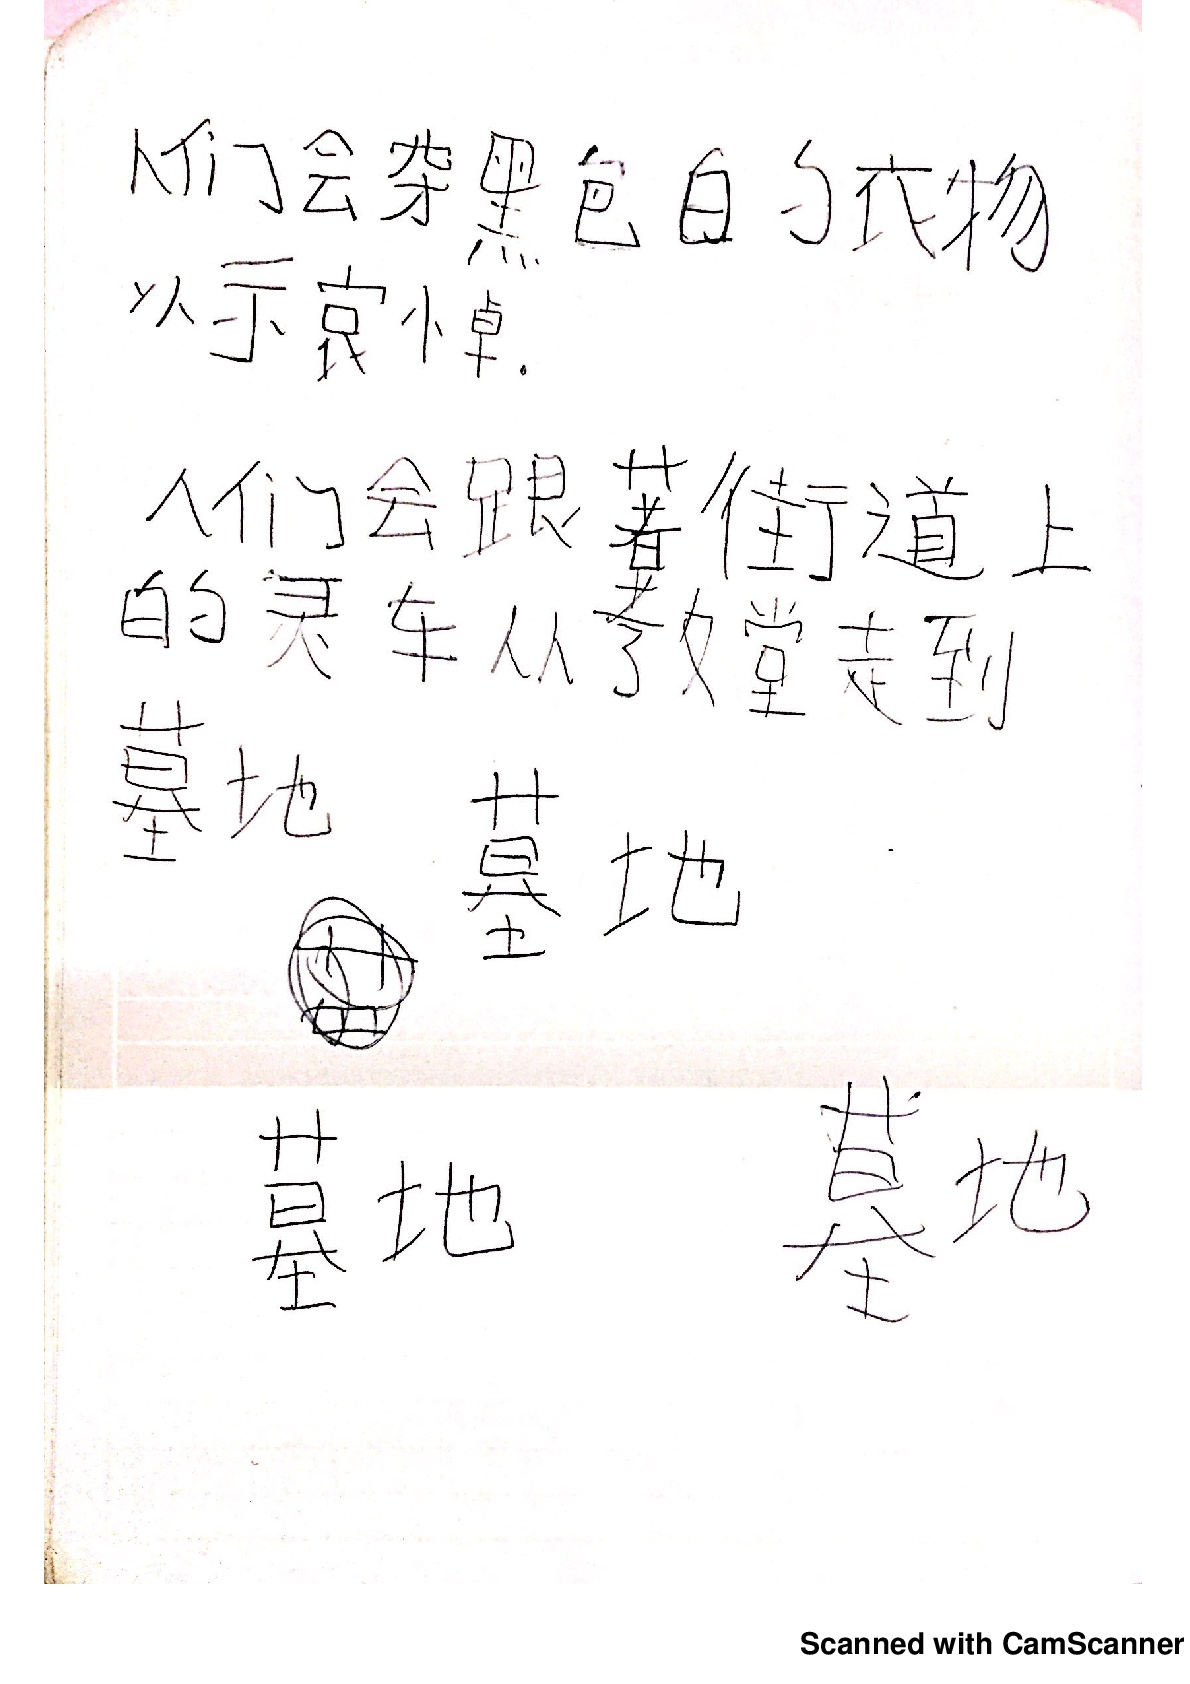 人们会穿黑色的衣物
以示哀悼.
人们会跟著街道上
的灵车从教堂走到
墓地
墓地
墓地
墓地
Scanned with CamScanner